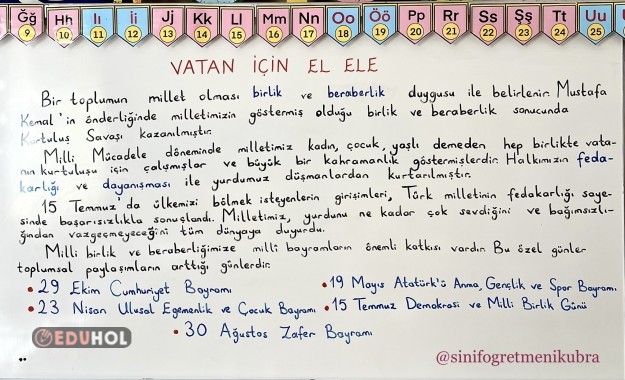 Ğğ Hh Iı İi Jj Kk Ll Mm Nn Oo Öö Pp Rr Ss Şş Tt Uu
9 10 11 12 13 14 15 16 17 18 19 20 21 22 23 24 25
VATAN İÇİN EL ELE
Bir toplumun millet olması birlik ve beraberlik duygusu ile belirlenir. Mustafa
Kemal'in önderliğinde milletimizin göstermiş olduğu birlik ve beraberlik sonucunda
Kurtuluş Savaşı kazanılmıştır.
Milli Mücadele döneminde milletimiz kadın, çocuk, yaşlı demeden hep birlikte vata-
nın kurtuluşu için çalışmışlar ve büyük bir kahramanlık göstermişlerdir. Halkımızın feda-
karlığı ve dayanışması ile yurdumuz düşmanlardan kurtarılmıştır.
15 Temmuz'da ülkemizi bölmek isteyenlerin girişimleri, Türk milletinin fedakarlığı saye-
sinde başarısızlıkla sonuçlandı. Milletimiz, yurdunu ne kadar çok sevdiğini ve bağımsızlı-
ğından vazgeçmeyeceğini tüm dünyaya duyurdu.
Milli birlik ve beraberliğimize milli bayramların önemli katkısı vardır. Bu özel günler
toplumsal paylaşımların arttığı günlerdir.
• 29 Ekim Cumhuriyet Bayramı
• 19 Mayıs Atatürk'ü Anma, Gençlik ve Spor Bayramı
• 23 Nisan Ulusal Egemenlik ve Çocuk Bayramı
• 15 Temmuz Demokrasi ve Milli Birlik Günü
• 30 Ağustos Zafer Bayramı
EDUHOL
@sinifogretmenikubra